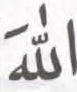 اللهَ